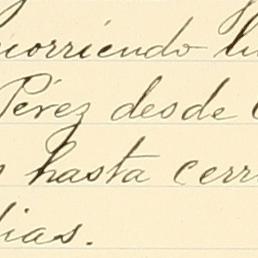 corriendo
Pérez desde
hasta cerr
ias.